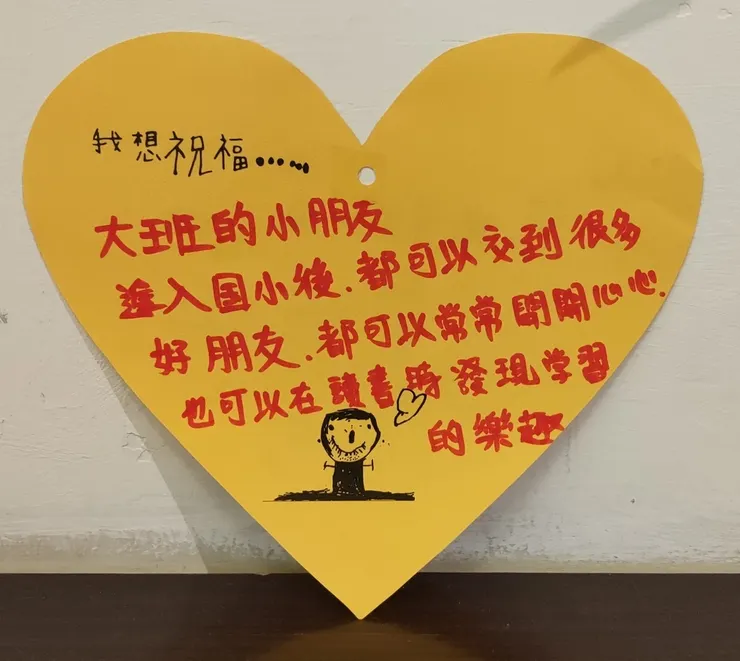 我想祝福......
大班的小朋友
進入国小後.都可以交到很多
好朋友.都可以常常開開心心.
也可以在讀書時發現学習
的樂趣